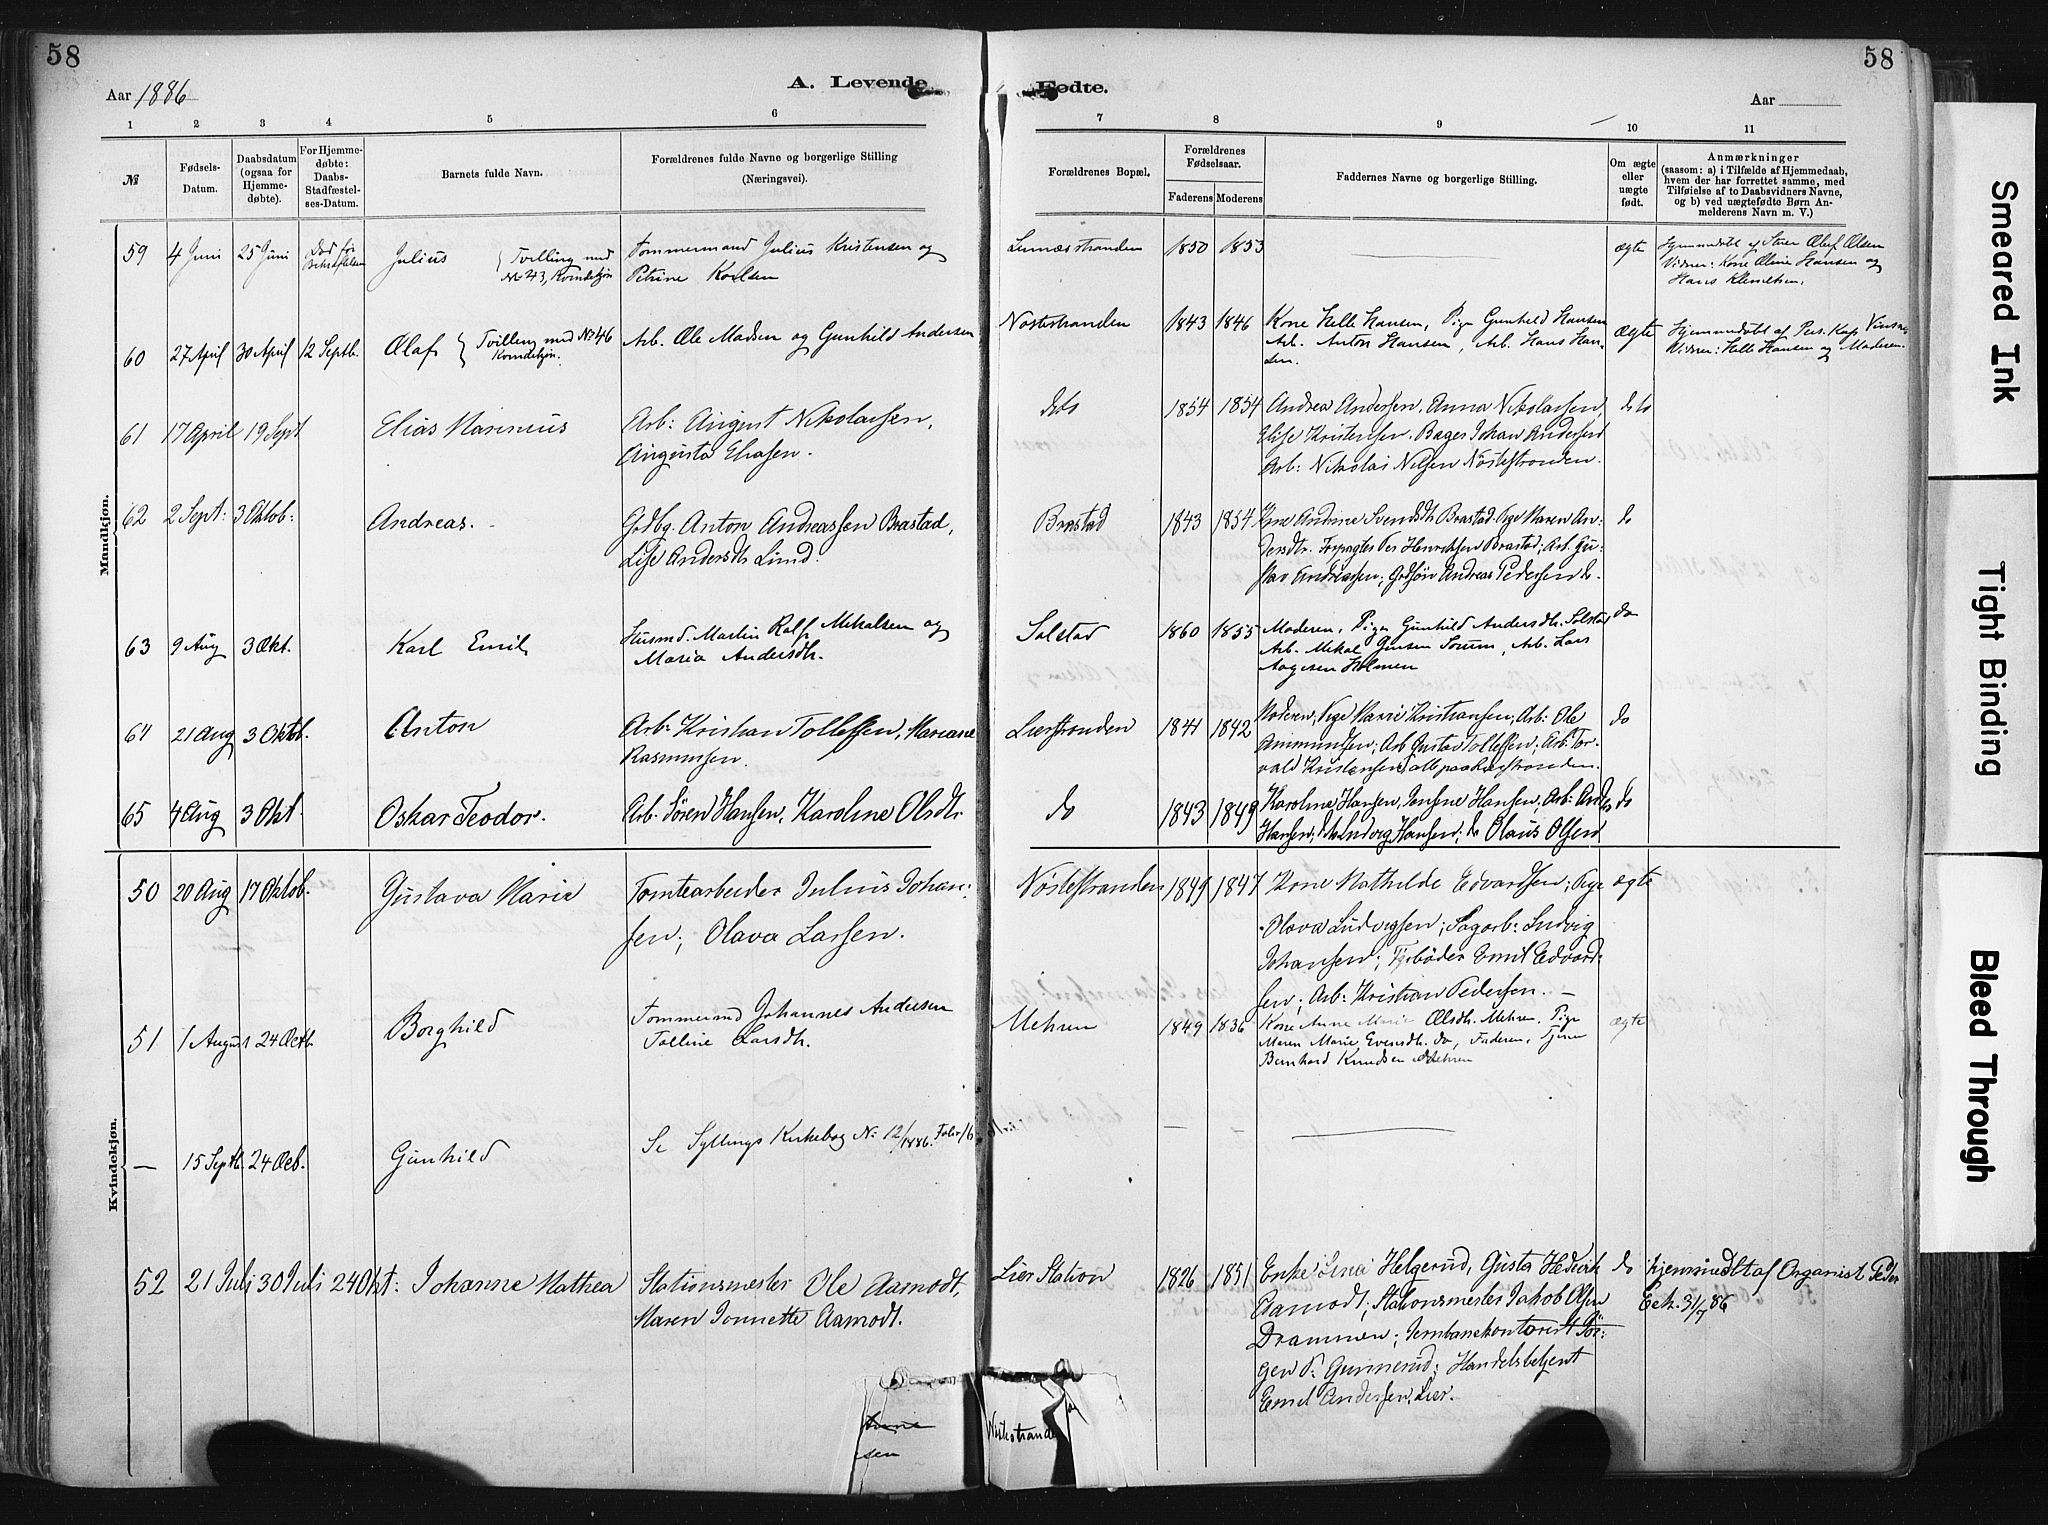 58
58
Aar 1886
A. Levende
Fødte.
Aar
1 2 3 4 5 6 7 8 9 10 11
№
Fødsels-
Datum.
Daabsdatum
(ogsaa for
Hjemme-
døbte).
For Hjemme-
døbte:
Daabs-
Stadfæstel-
ses-Datum.
Barnets fulde Navn.
Forældrenes fulde Navne og borgerlige Stilling
(Næringsvei).
Forældrenes Bopæl.
Forældrenes
Fødselsaar.
Faderens Moderens
Faddernes Navne og borgerlige Stilling.
Om ægte
eller
uægte
født.
Anmærkninger
(saasom: a) i Tilfælde af Hjemmedaab,
hvem der har forrettet samme, med
Tilføielse af to Daabsvidners Navne,
og b) ved uægtefødte Børn An-
melderens Navn m. V.)
Mandkjøn.
59 4 Juni 25 Juni Død før
Julius
Tvilling med
No 43, Kvindekjøn
Tømmermand Julius Kristensen og
Petrine Karlsen
1850 1853
ægte
Hjemmedøbt af Olaf Olsen
Vidner: Kone Oline Hansen og
Hans Klemetsen.
60 27 April 30 April 12 Septb.
Olaf
Tvilling med No 46
Kvindekjøn.
Arb. Ole Madsen og Gunhild Andersen
Nøstestranden
1843 1846
Kone Helle Hansen, Pige Gunhild Hansen
Arb. Anton Hansen, Arb. Hans Han-
sen.
Ægte
Hjemmedøbt af Pers. Kap. Vinsnes
Vidner: Helle Hansen og Moderen.
61 17 April 19 Sept
Elias Marinius
Arb: August Nikolaisen,
Augusta Eliasen.
dito
1854 1854
Andrea Andersen, Anna Nikolaisen,
Elise Kristensen. Bager Johan Andersen
Arb: Nikolai Nilsen Nøstestranden.
dito
62 2 Sept: 3 Oktob:
Andreas.
Grdbg. Anton Andreassen Brastad,
Lise Andersdtr Lund.
Brastad
1843 1854
Kone Andrine Svendsdtr Brastad. Pige Maren An-
dersdtr. Forpagter Per Henriksen Brastad; Arb. Gu-
stav Andreassen; Grdsøn Andreas Pedersen do.
do
63 9 Aug 3 Okt.
Karl Emil
Husmd. Martin Ralf Mikalsen og
Maria Andersdtr.
Solstad
1860 1855
Moderen, Pige Gunhild Andersdtr. Solstad
Arb. Mikal Sørum, Arb. Lars
Aagesen Holmen
do
64 21 Aug 3 Oktob.
Anton
Arb: Kristian Tollefsen, Mariane
Rasmussen.
Lierstranden
1841 1842
Moderen; Pige Marie Kristiansen; Arb: Ole
Ammundsen; Arb Gustav Tollefsen; Arb: Tor-
vald Kristensen alle paa Lierstranden.
do
65 4 Aug 3 Okt.
Oskar Teodor.
Arb: Søren Hansen, Karoline Olsdtr.
do
1843 1849
Karoline Hansen, Jensine Hansen, Arb: Anders
Hansen; do Ludvig Hansen; do Olaus Olsen
do
Kvindekjøn.
50 20 Aug 17 Oktob.
Gustava Marie
Tomtearbeider Julius Johan-
sen; Olava Larsen.
Nøstestranden
1849 1847
Kone Mathilde Edvardsen; Pige
Olava Ludvigsen; Sagarb: Ludvig
Johansen; Fyrbøder Emil Edvard-
sen; Arb: Kristian Pedersen. —
ægte
51 1 August 24 Octb.
Borghild
Tømmermd Johannes Andersen
Tolline Larsdtr.
Mehren
1849 1836
Kone Anne Marie Olsdtr. Mehren, Pige
Maren Marie Evensdtr. do, Faderen, Tjener
Bernhard Knudsen Mehren
ægte
— 15 Septb. 24 Octb.
Gunhild
Se Syllings Kirkebog No 12/1886. Folio 16
52 21 Juli 30 Juli 24 Okt:
Johanne Mathea
Stationsmester Ole Aamodt,
Maren Jonnette Aamodt.
Lier Station
1826 1851
Enke Lina Helgerud, Gusta Hedvik
Aamodt; Stationsmester Jakob Olsen
Drammen; Jernbanekontorist Jør-
gen P. Gunnerud; Handelsbetjent
Emil Andersen, Lier.
do
hjemmedøbt af Organist Peder
31/7 86
sen
Nøstestranden
Smeared Ink
Tight Binding
Bleed Through